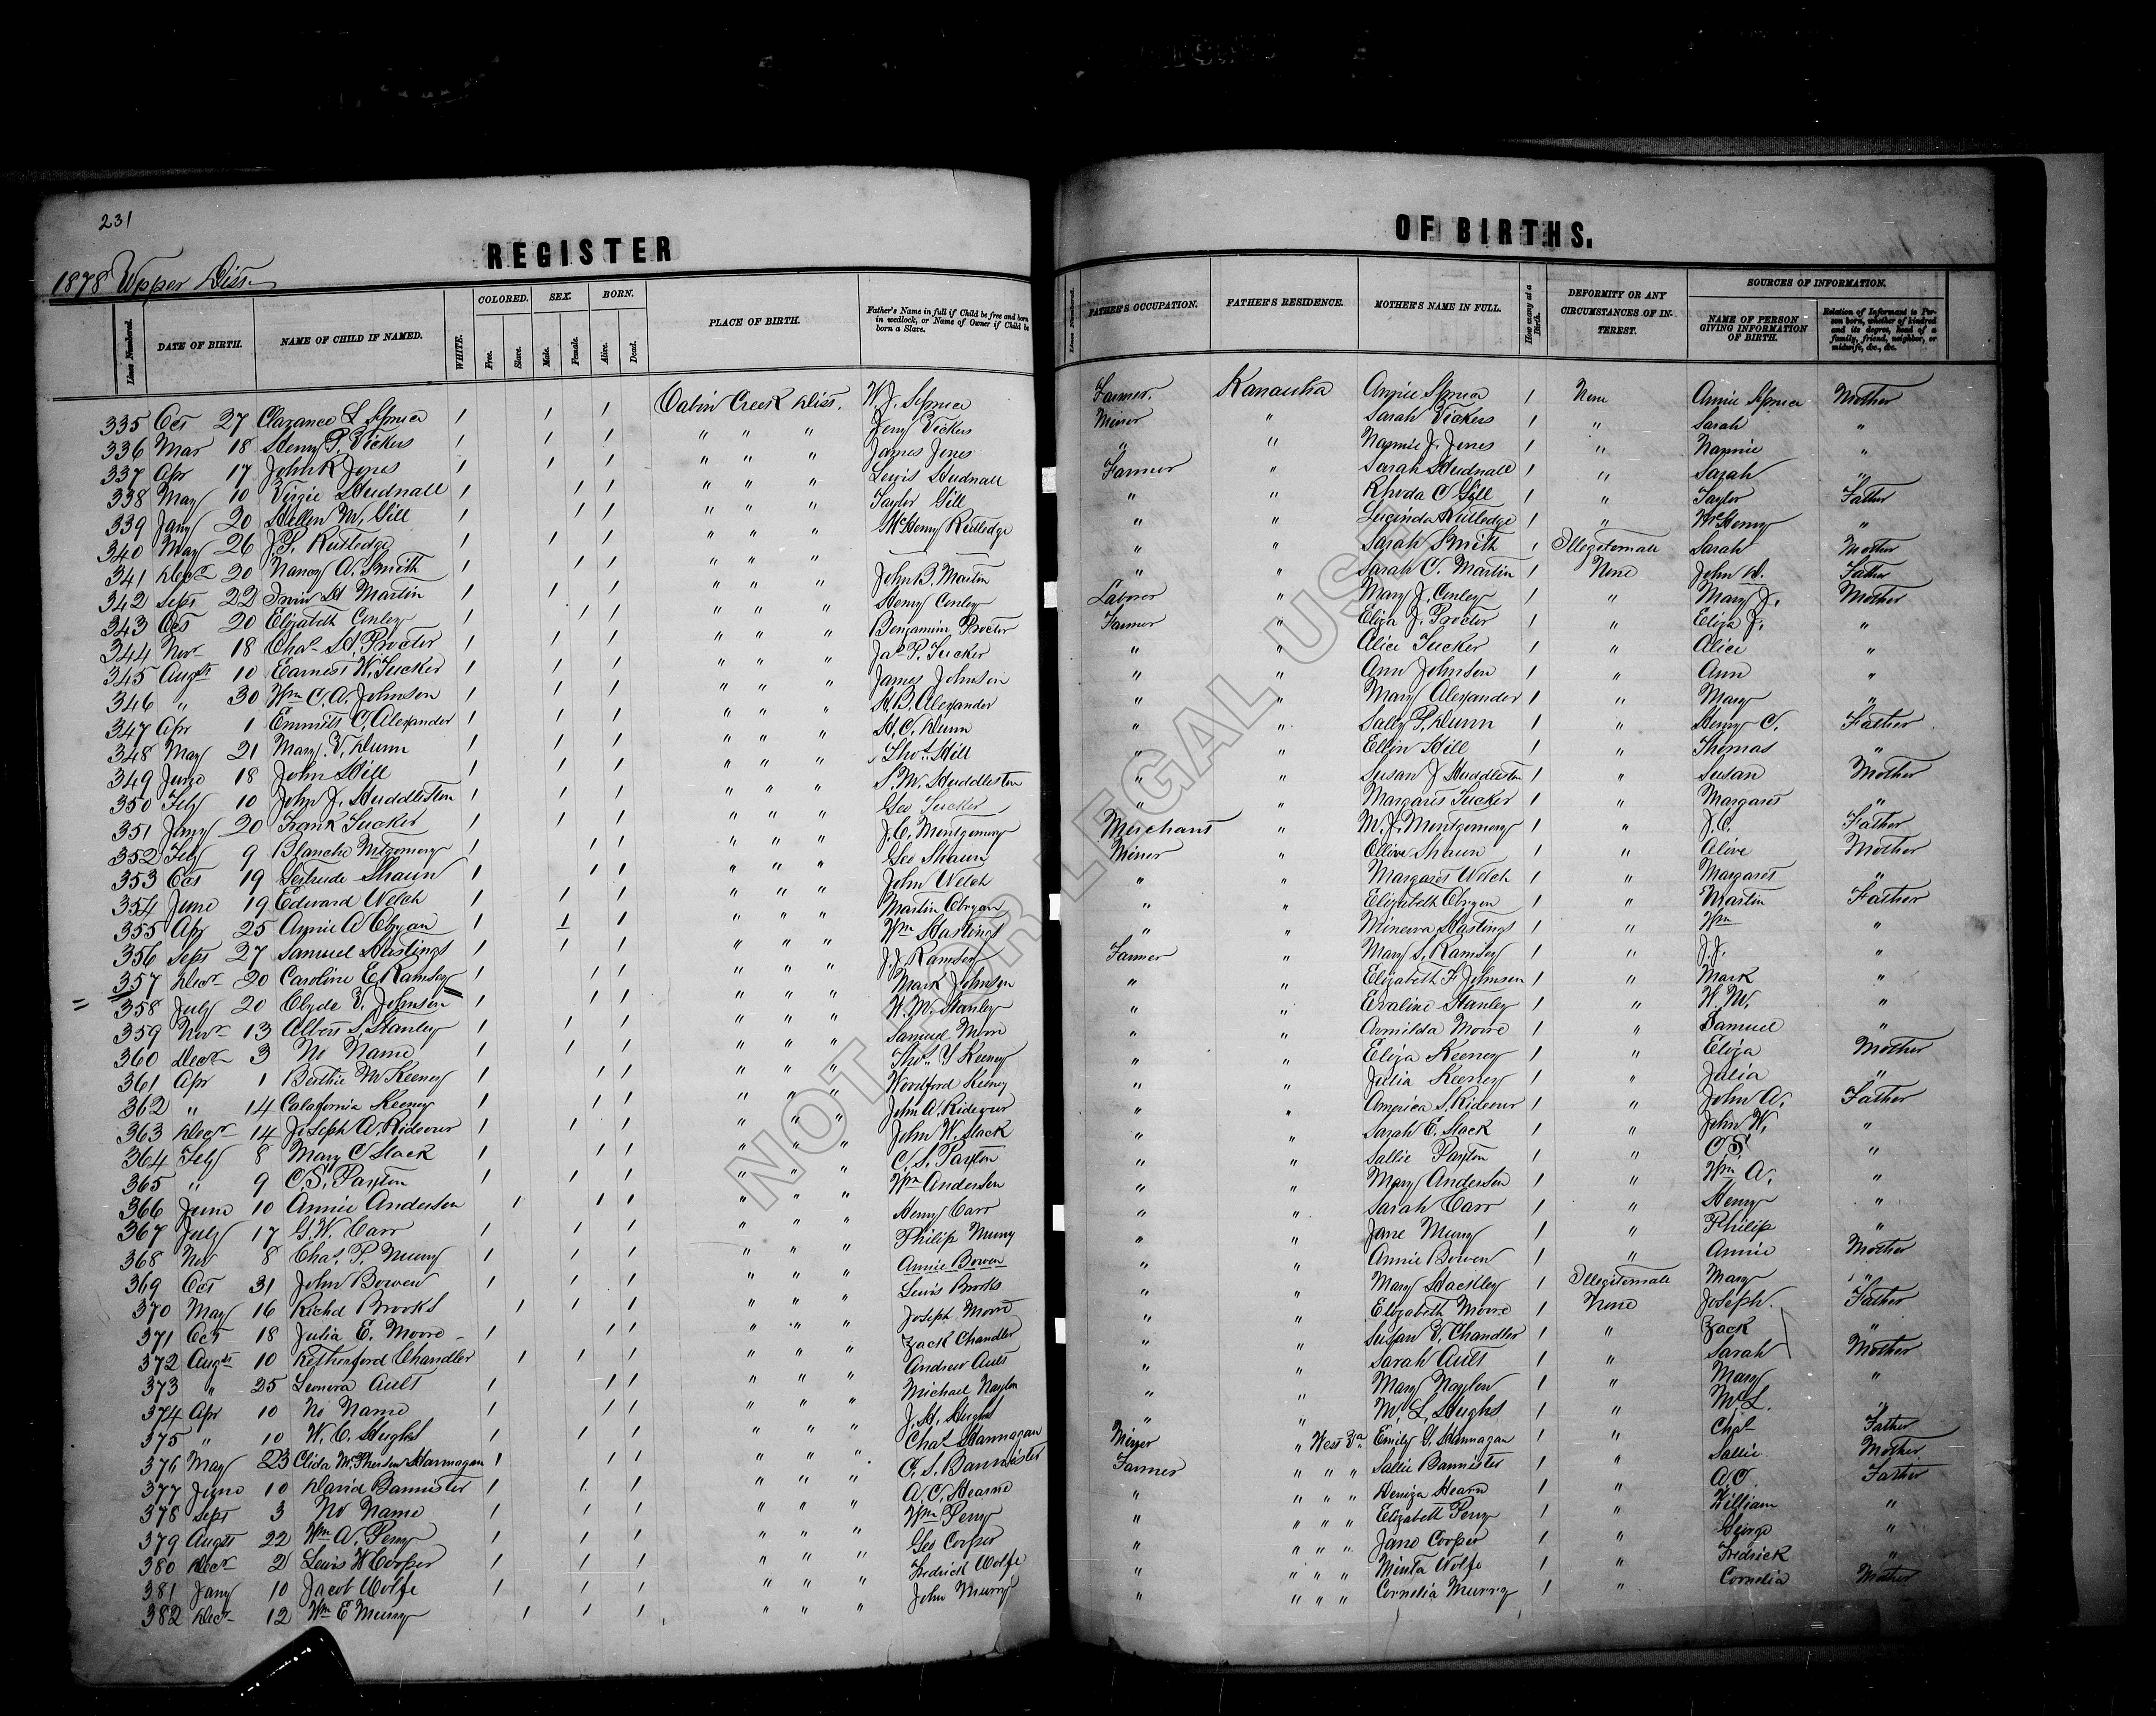 231
REGISTER
OF BIRTHS.
1878 Upper Diss
Lines Numbered. DATE OF BIRTH. NAME OF CHILD IF NAMED. WHITE. COLORED. Free. Slave. SEX. Male. Female. BORN. Alive. Dead. PLACE OF BIRTH. Father's Name in full if Child be free and born in wedlock, or Name of Owner if Child be born a Slave.
Lines Numbered. FATHER'S OCCUPATION. FATHER'S RESIDENCE. MOTHER'S NAME IN FULL. How many at a Birth. DEFORMITY OR ANY CIRCUMSTANCES OF INTEREST. SOURCES OF INFORMATION. NAME OF PERSON GIVING INFORMATION OF BIRTH. Relation of Informant to Person born, whether of kindred and its degree, head of a family, friend, neighbor, or midwife, &c., &c.
335 Oct 27 Clarance L Spruce 1 1 1 Cabin Creek Diss. W. J. Spruce Farmer. Kanawha Annie Spruce 1 None Annie Spruce Mother
336 Mar 18 Henry P. Vickers 1 1 1 " " " Vickers Miner " Sarah Vickers 1 " Sarah "
337 Apr 17 John R Jones 1 1 1 " " " James Jones " " Nannie J. Jones 1 " Nannie "
338 May 10 Virgie Hudnall 1 1 1 " " " Lewis Hudnall Farmer " Sarah Hudnall 1 " Sarah "
339 Jany 20 Hellen M. Gill 1 1 1 " " " Taylor Gill " " Rhoda C Gill 1 " Taylor Father
340 May 26 J. P. Rutledge 1 1 1 " " " McHenry Rutledge " " Lucinda Rutledge 1 " McHenry "
341 Decr 20 Nancy A. Smith 1 1 1 " " " " " Sarah Smith 1 Illegitemate Sarah Mother
342 Sept 22 Irvin H Martin 1 1 1 " " " John B. Martin " " Sarah C. Martin 1 None John Father
343 Oct 20 Elizabeth Conley 1 1 1 " " " Henry Conley Laborer " Mary J. Conley 1 " Mary J. Mother
344 Nov 18 Chas H. Proctor 1 1 1 " " " Benjamin Proctor Farmer " Eliza J. Proctor 1 " Eliza J. "
345 Augst 10 Earnest W. Tucker 1 1 1 " " " Jas P. Tucker " " Alice Tucker 1 " Alice "
346 " 30 Wm C. A. Johnson 1 1 1 " " " James Johnson " " Ann Johnson 1 " Ann "
347 Apr 1 Emmitt C. Alexander 1 1 1 " " " H. B. Alexander " " Mary Alexander 1 " Mary "
348 May 21 Mary V. Dunn 1 1 1 " " " H. C. Dunn " " Sally P. Dunn 1 " Henry C. Father
349 June 18 John Hill 1 1 1 " " " Thos Hill " " Ellen Hill 1 " Thomas "
350 Feby 10 John J. Huddleston 1 1 1 " " " S. M. Huddleston " " Susan J Huddleston 1 " Susan Mother
351 Jany 20 Frank Tucker 1 1 1 " " " Geo Tucker " " Margaret Tucker 1 " Margaret "
352 Feby 9 Blanche Mtgomery 1 1 1 " " " J. C. Montgomery Merchant " M. J. Montgomery 1 " J. C. Father
353 Oct 19 Gertrude Shaun 1 1 1 " " " Geo Shaun Miner " Ollive Shaun 1 " Alive Mother
354 June 19 Edward Welch 1 1 1 " " " John Welch " " Margaret Welch 1 " Margaret "
355 Apr 25 Annie A Obryan 1 1 1 " " " Martin Obryan " " Elizabeth Obryen 1 " Martin Father
356 Sept 27 Samuel Hastings 1 1 1 " " " Wm Hastings " " Minerva Hastings 1 " Wm "
357 Decr 20 Caroline E. Ramsey 1 1 1 " " " J. J. Ramsey Farmer " Mary S. Ramsey 1 " J. J. "
358 July 20 Clyde V. Johnson 1 1 1 " " " Mark Johnson " " Elizabeth F Johnson 1 " Mark "
359 Novr 13 Albert S. Stanley 1 1 1 " " " W. M. Stanley " " Evaline Stanley 1 " W. M. "
360 Decr 3 No Name 1 1 1 " " " Samuel Moore " " Armilda Moore 1 " Samuel "
361 Apr 1 Berthie M Keeney 1 1 1 " " " Thos Y Keeney " " Eliza Keeney 1 " Eliza Mother
362 " 14 Calafornia Keeney 1 1 1 " " " Woodford Keeney " " Julia Keeney 1 " Julia "
363 Decr 14 Joseph A. Rideour 1 1 1 " " " John A. Rideour " " America S. Rideour 1 " John A. Father
364 Feby 8 Mary C Slack 1 1 1 " " " John W. Slack " " Sarah E. Slack 1 " John W. "
365 " 9 C. S. Paxton 1 1 1 " " " C. S. Paxton " " Sallie Paxton 1 " C S. "
366 June 10 Annie Anderson 1 1 1 " " " Wm Anderson " " Mary Anderson 1 " Wm A. "
367 July 17 G. W. Carr 1 1 1 " " " Henry Carr " " Sarah Carr 1 " Henry "
368 Nov 8 Chas. P. Murry 1 1 1 " " " Philip Murry " " Jane Murry 1 " Philip "
369 Oct 31 John Bowen 1 1 1 " " " Annie Bowen " " Annie Bowen 1 " Annie Mother
370 May 16 Richd Brooks 1 1 1 " " " Lewis Brooks " " Mary Hackley 1 Illegitemate Mary "
371 Oct 18 Julia E. Moore 1 1 1 " " " Joseph Moore " " Elizabeth Moore 1 None Joseph. Father
372 Augst 10 Retherford Chandler 1 1 1 " " " Zack Chandler " " Susan V. Chandler 1 " Zack "
373 " 25 Leonora Ault 1 1 1 " " " Andrew Ault " " Sarah Ault 1 " Sarah Mother
374 Apr 10 No Name 1 1 1 " " " Michael Naylon " " Mary Naylon 1 " Mary "
375 " 10 W. C. Hughs 1 1 1 " " " J. H. Hughs " " M. L. Hughs 1 " M. L. "
376 May 23 Clida McPherson Hannagan 1 1 1 " " " Chas Hannagan Miner " West Va Emily G. Hannagan 1 " Chas Father
377 June 10 David Bannister 1 1 1 " " " C. S. Bannister Farmer " " " Sallie Bannister 1 " Sallie Mother
378 Sept 3 No Name 1 1 1 " " " A. C. Hearne " " " " Hearn 1 " A C. Father
379 Augst 22 Wm A. Perry 1 1 1 " " " Wm Perry " " " " Elizabeth Perry 1 " William "
380 Decr 2 Lewis W Cooper 1 1 1 " " " Geo Cooper " " " " Jane Cooper 1 " George "
381 Jany 10 Jacob Wolfe 1 1 1 " " " Fredrick Wolfe " " " " Minta Wolfe 1 " Fredrick "
382 Decr 12 Wm E Murry 1 1 1 " " " John Murry " " " " Cornelia Murry 1 " Cornelia Mother
NOT FOR LEGAL USE